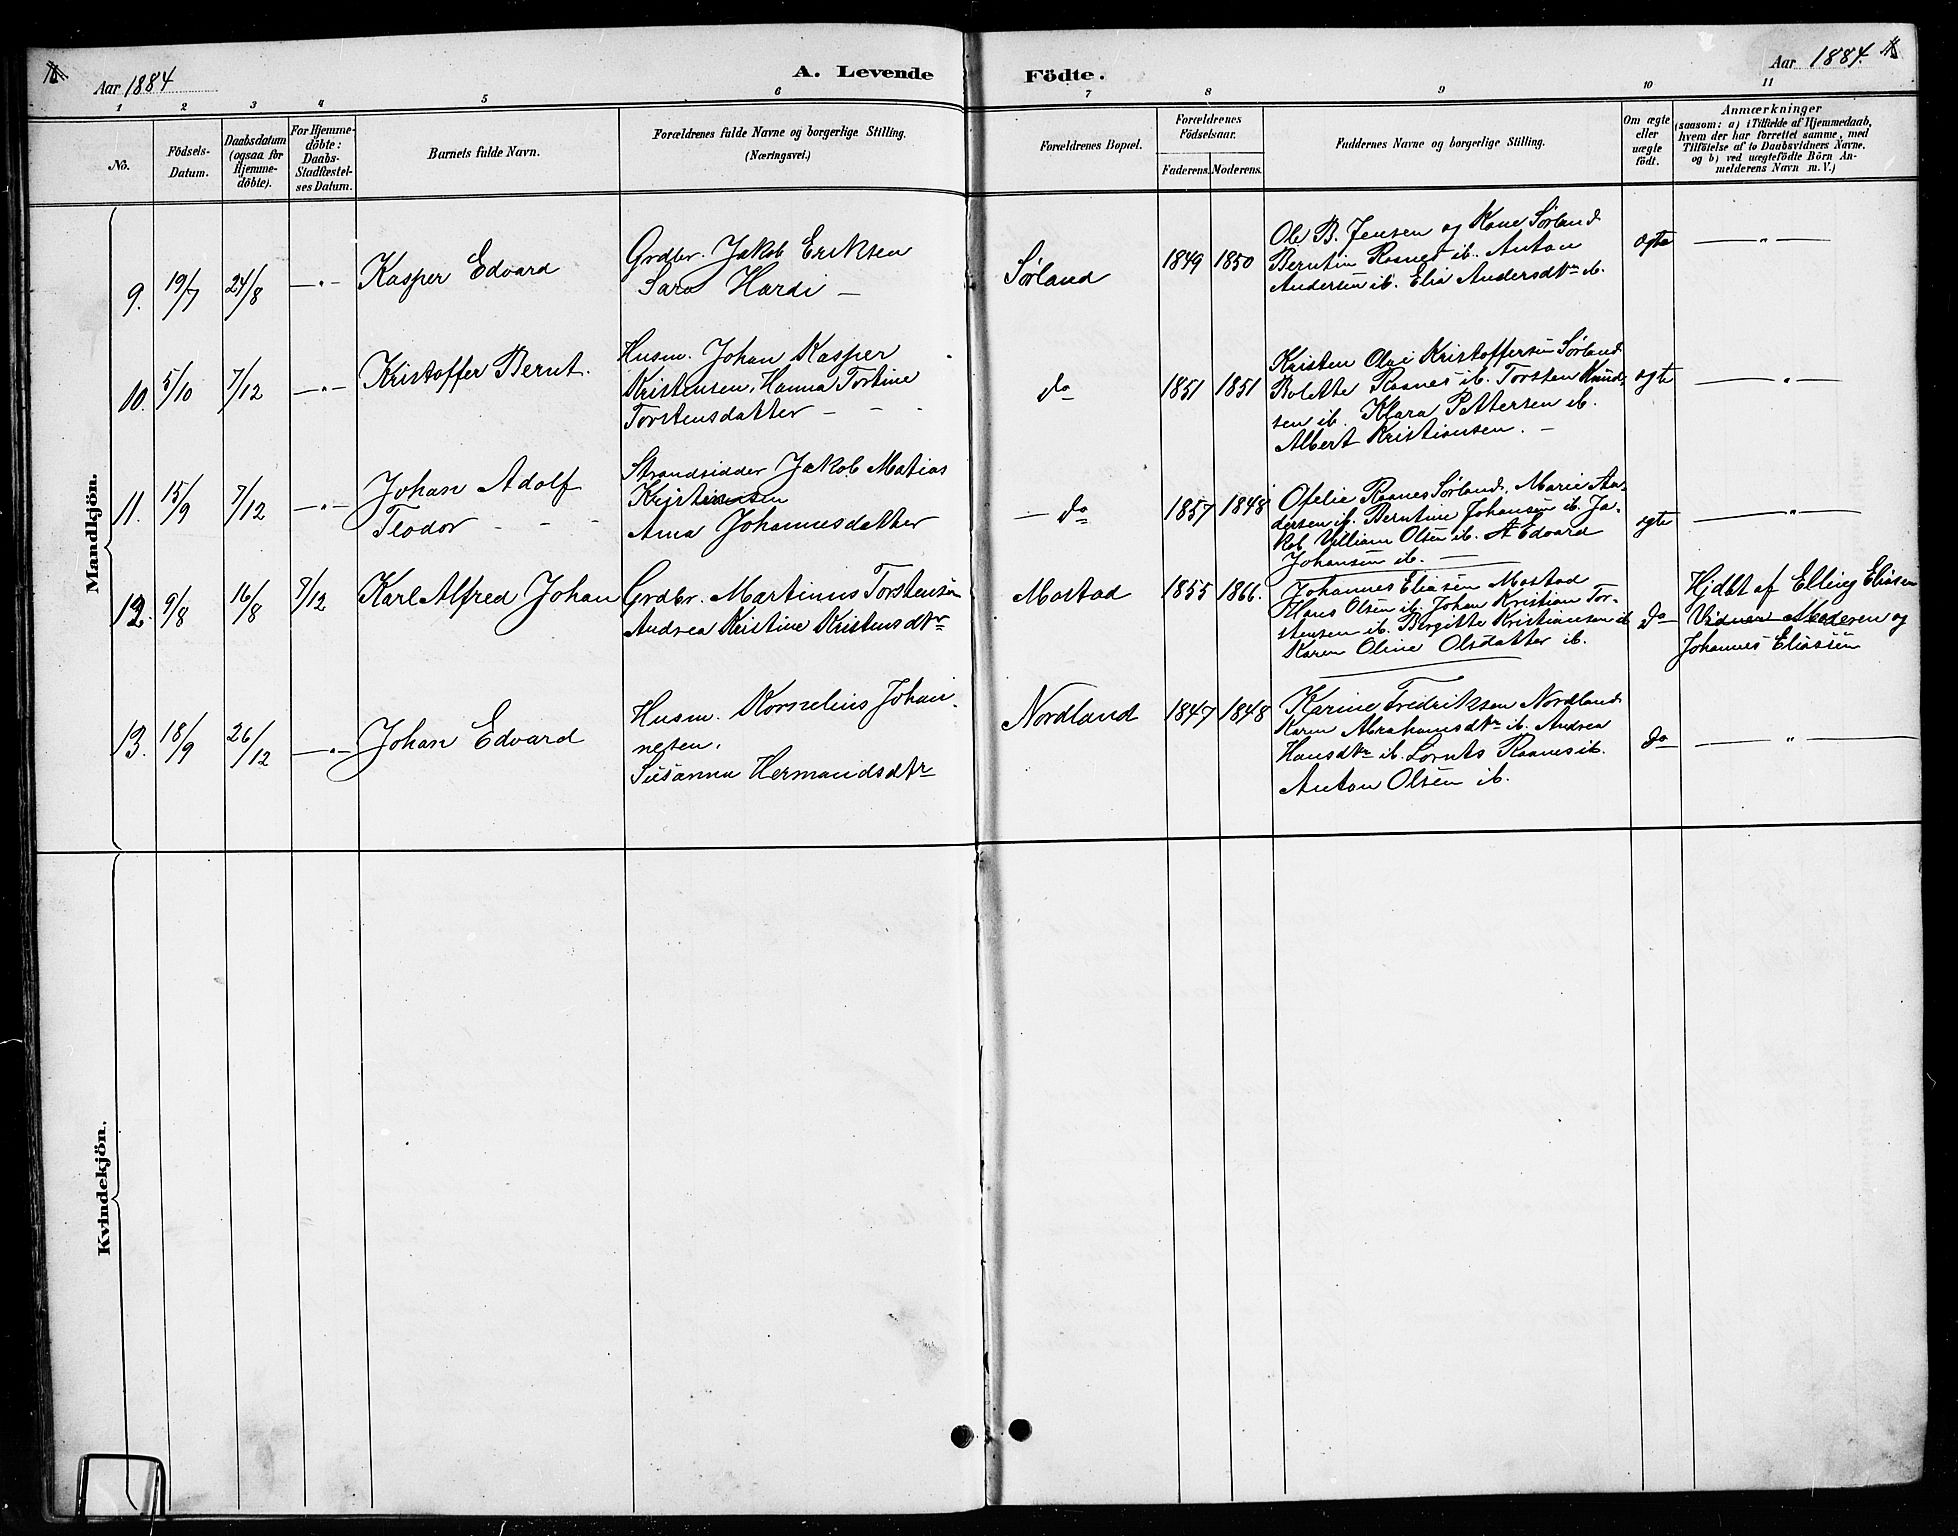 Aar 1884
A. Levende Födte.
Aar 1884.
1 2 3 4 5 6 7 8 9 10 11
No.
Födsels-
Datum.
Daabsdatum
(ogsaa for
Hjemme-
döbte).
For Hjemme-
döbte:
Daabs-
Stadfæstel-
ses Datum.
Barnets fulde Navn.
Forældrenes fulde Navne og borgerlige Stilling.
(Næringsvei.)
Forældrenes Bopæl.
Forældrenes
Födselsaar.
Faderens. Moderens.
Faddernes Navne og borgerlige Stilling.
Om ægte
eller
uægte
født.
Anmærkninger
(saasom: a) i Tilfælde af Hjemmedaab,
hvem der har forrettet samme, med
Tilföielse af to Daabsvidners Navne.
og b) ved uægtefödte Börn An-
melderens Navn m. V.)
Mandkjön.
9. 19/7 24/8 — " —
Kasper Edvard
Grdbr. Jakob Eriksen
Sara Hardi —
Sørland
1849 1850
Ole B. Jensen og Kone Sørland
Berntin Rosnes ib. Anton
Andersen ib. Elia Andersdtr ib.
ægte — " —
10. 5/10 7/12 — " —
Kristoffer Bernt.
Husm. Johan Kasper
Kristensen, Hanna Tortine
Torstensdatter - - -
do
1851 1851
Kristen Olai Kristoffersen Sørland
Bolette Rosnes ib. Torsten Knud-
sen ib. Klara Pettersen ib.
Albert Kristiansen. —
ægte — " —
11. 15/9 7/12 — " —
Johan Adolf
Teodor - - -
Strandsidder Jakob Matias
Kristensen
Ana Johannesdatter
— do
1857 1848
Ofelie Raanes Sørland. Marie An-
dersen ib. Berntine Johansen ib. Ja-
kob Villiam Olsen ib. A Edvard
Johansen ib. —
ægte — " —
12. 9/8 16/8 7/12
Karl Alfred Johan
Grdbr. Martinus Torstensen
Andrea Kristine Kristensdtr
Mostad
1855 1866.
Johannes Eliasen Mostad
Hans Olsen ib. Johan Kristian Tor-
stensen ib. Birgitte Kristiansen ib
Karen Oline Olsdatter ib.
do
Hjdbt af Elling Eliasen
Vidner Moderen og
Johannes Eliassen
13. 18/9 26/12 — " —
Johan Edvard
Husm. Kornelius Johan-
nesen.
Susanna Hermandsdtr
Nordland
1847 1848
Karine Fredriksen Nordland
Karen Abrahamsdtr ib. Andrea
Hansdtr ib. Lornts Raanes ib.
Anton Olsen ib.
do — " —
Kvindekjön.